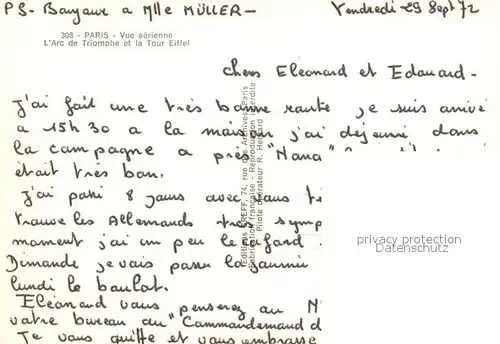 PS- Bonjour a Mlle MÜLLER -
Vendredi 29 Sept 72
308 - PARIS - Vue aérienne
L'Arc de Triomphe et la Tour Eiffel
chers Eléonard et Edouard -
J'ai fait une très bonne route je suis arrivé
a 15h30 a la maison j'ai déjeuné dans
la campagne a près "Nana"
était très bon.
J'ai passé 8 jours avec vous
trouve les Allemands très symp
moment j'ai un peu le cafard
Dimande je vais passer la journée
lundi le boulot.
Eléonard vous penserez au N
votre bureau au "Commandemand d
Je vous quitte et vous embrasse
Editions GREFF, 74, rue des Archives, Paris
Fabrication française - Reproduction interdite
Pilote Opérateur R. Henrard
privacy protection
DELCAMPE